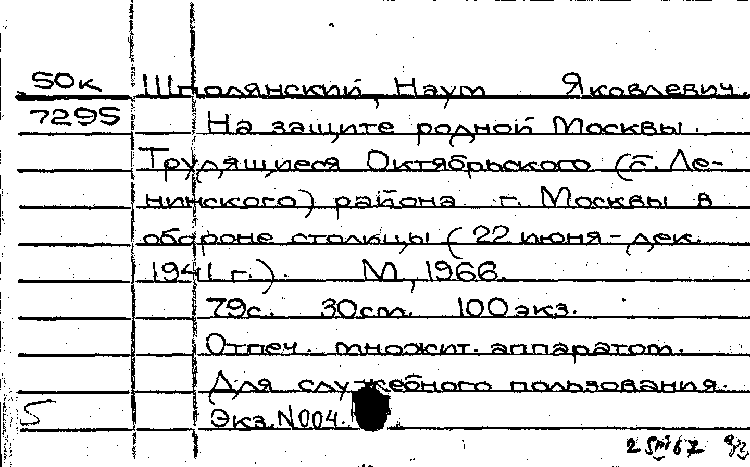 50к Шполянский, Наум Яковлевич.
7295 На защите родной Москвы.
Трудящиеся Октябрьского (б. Ле-
нинского) района г. Москвы в
обороне столицы (22 июня - дек.
1941 г.). М., 1966.
79с. 30см. 100 экз.
Отпеч. множит. аппаратом.
Для служебного пользования.
5 Экз. N004.